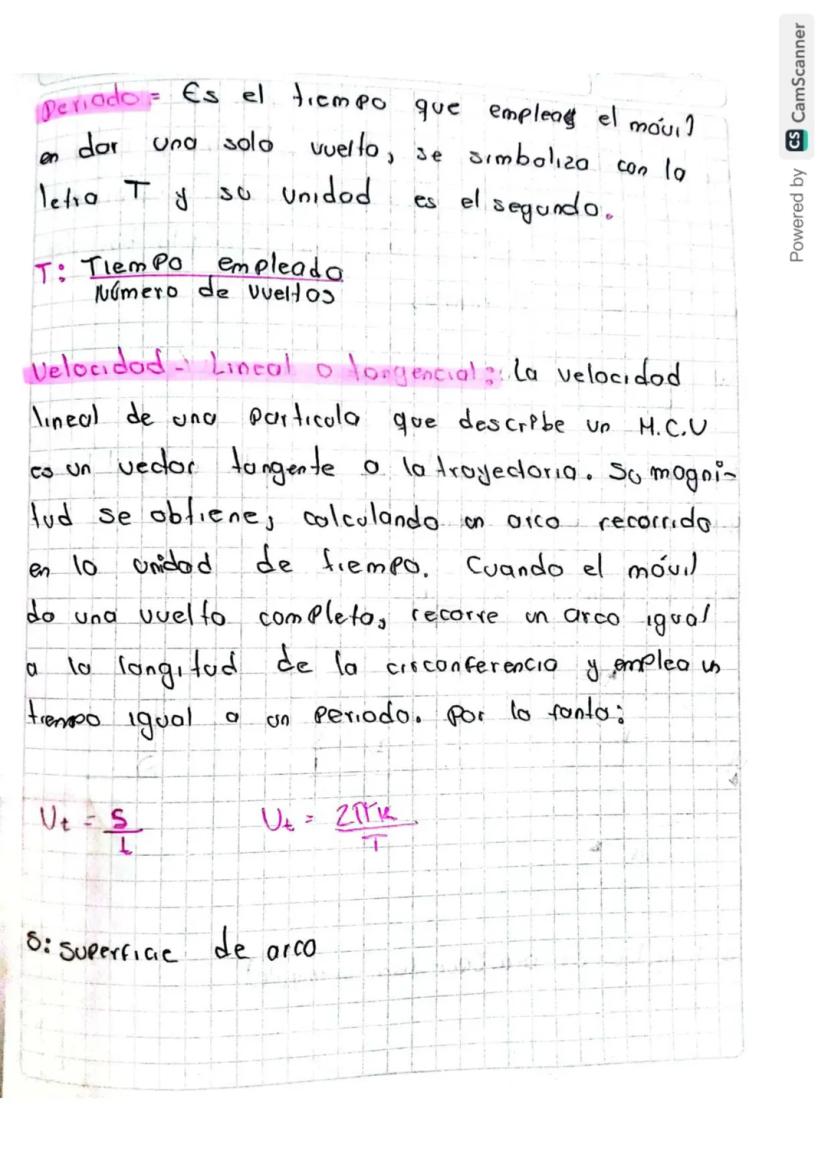 Periodo = Es el tiempo que emplea el móvil
en dar una sola vuelta, se simboliza con la
letra T y su unidad es el segundo.
T: Tiempo empleado
Número de vueltas
Velocidad - Lineal o tangencial: La velocidad
lineal de una particula que describe un M.C.U
es un vector tangente a la trayectoria. Su magni-
tud se obtiene, calculando en arco recorrido
en la unidad de tiempo. Cuando el móvil
da una vuelta completa, recorre un arco igual
a la longitud de la circonferencia y emplea un
tiempo igual a un periodo. Por lo tanto:
Vt = S Vt = 2πr
t T
S: superficie de arco
Powered by CS CamScanner